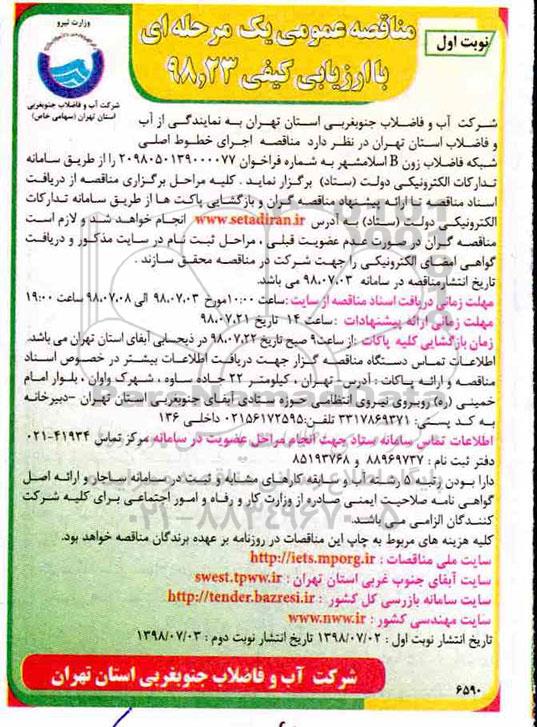 وزارت نیرو
شرکت آب و فاضلاب جنوبغربی
استان تهران (سهامی خاص)
مناقصه عمومی یک مرحله ای
با ارزیابی کیفی ۹۸,۲۳
نوبت اول
شرکت آب و فاضلاب جنوبغربی استان تهران به نمایندگی از آب
و فاضلاب استان تهران در نظر دارد مناقصه اجرای خطوط اصلی
شبکه فاضلاب زون B اسلامشهر به شماره فراخوان ۲۰۹۸۰۵۰۱۳۹۰۰۰۰۷۷ را از طریق سامانه
تدارکات الکترونیکی دولت (ستاد) برگزار نماید . کلیه مراحل برگزاری مناقصه از دریافت
اسناد مناقصه تا ارائه پیشنهاد مناقصه گران و بازگشایی پاکت ها از طریق سامانه تدارکات
الکترونیکی دولت (ستاد) به آدرس www.setadiran.ir انجام خواهد شد و لازم است
مناقصه گران در صورت عدم عضویت قبلی ، مراحل ثبت نام در سایت مذکور و دریافت
گواهی امضای الکترونیکی را جهت شرکت در مناقصه محقق سازند .
تاریخ انتشار مناقصه در سامانه ۹۸،۰۷،۰۳ می باشد.
مهلت زمانی دریافت اسناد مناقصه از سایت :ساعت ۱۰:۰۰مورخ ۹۸،۰۷،۰۳ الی ۹۸،۰۷،۰۸ ساعت ۱۹:۰۰
مهلت زمانی ارائه پیشنهادات : ساعت ۱۴ تاریخ ۹۸،۰۷،۲۱
زمان بازگشایی کلیه پاکات :از ساعت۹ صبح تاریخ ۹۸،۰۷،۲۲ در ذیحسابی آبفای استان تهران می باشد.
اطلاعات تماس دستگاه مناقصه گزار جهت دریافت اطلاعات بیشتر در خصوص اسناد
مناقصه و ارائه پاکات : آدرس - تهران ، کیلومتر ۲۲ جاده ساوه ، شهرک واوان ، بلوار امام
خمینی (ره) روبروی نیروی انتظامی حوزه ستادی آبفای جنوبغربی استان تهران -دبیرخانه
به کد پستی: ۳۳۱۷۸۶۹۳۷۱ تلفن:۰۲۱۵۶۱۷۲۵۹۵ داخلی ۱۳۶
اطلاعات تماس سامانه ستاد جهت انجام مراحل عضویت در سامانه مرکز تماس ۴۱۹۳۴-۰۲۱
دفتر ثبت نام : ۸۸۹۶۹۷۳۷ و ۸۵۱۹۳۷۶۸
دارا بودن رتبه ۵ رشته آب و سابقه کارهای مشابه و ثبت در سامانه ساجار و ارائه اصل
گواهی نامه صلاحیت ایمنی صادره از وزارت کار و رفاه و امور اجتماعی برای کلیه شرکت
کنندگان الزامی می باشد.
کلیه هزینه های مربوط به چاپ این مناقصات در روزنامه بر عهده برندگان مناقصه خواهد بود.
سایت ملی مناقصات : http://iets.mporg.ir
سایت آبفای جنوب غربی استان تهران : swest.tpww.ir
سایت سامانه بازرسی کل کشور : http://tender.bazresi.ir
سایت مهندسی کشور : www.nww.ir
تاریخ انتشار نوبت اول : ۱۳۹۸/۰۷/۰۲ تاریخ انتشار نوبت دوم : ۱۳۹۸/۰۷/۰۳
شرکت آب و فاضلاب جنوبغربی استان تهران
۶۵۹۰